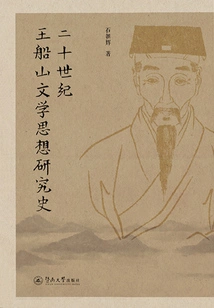 二十世纪
王船山文学思想研究史
石朝辉 著
暨南大学出版社